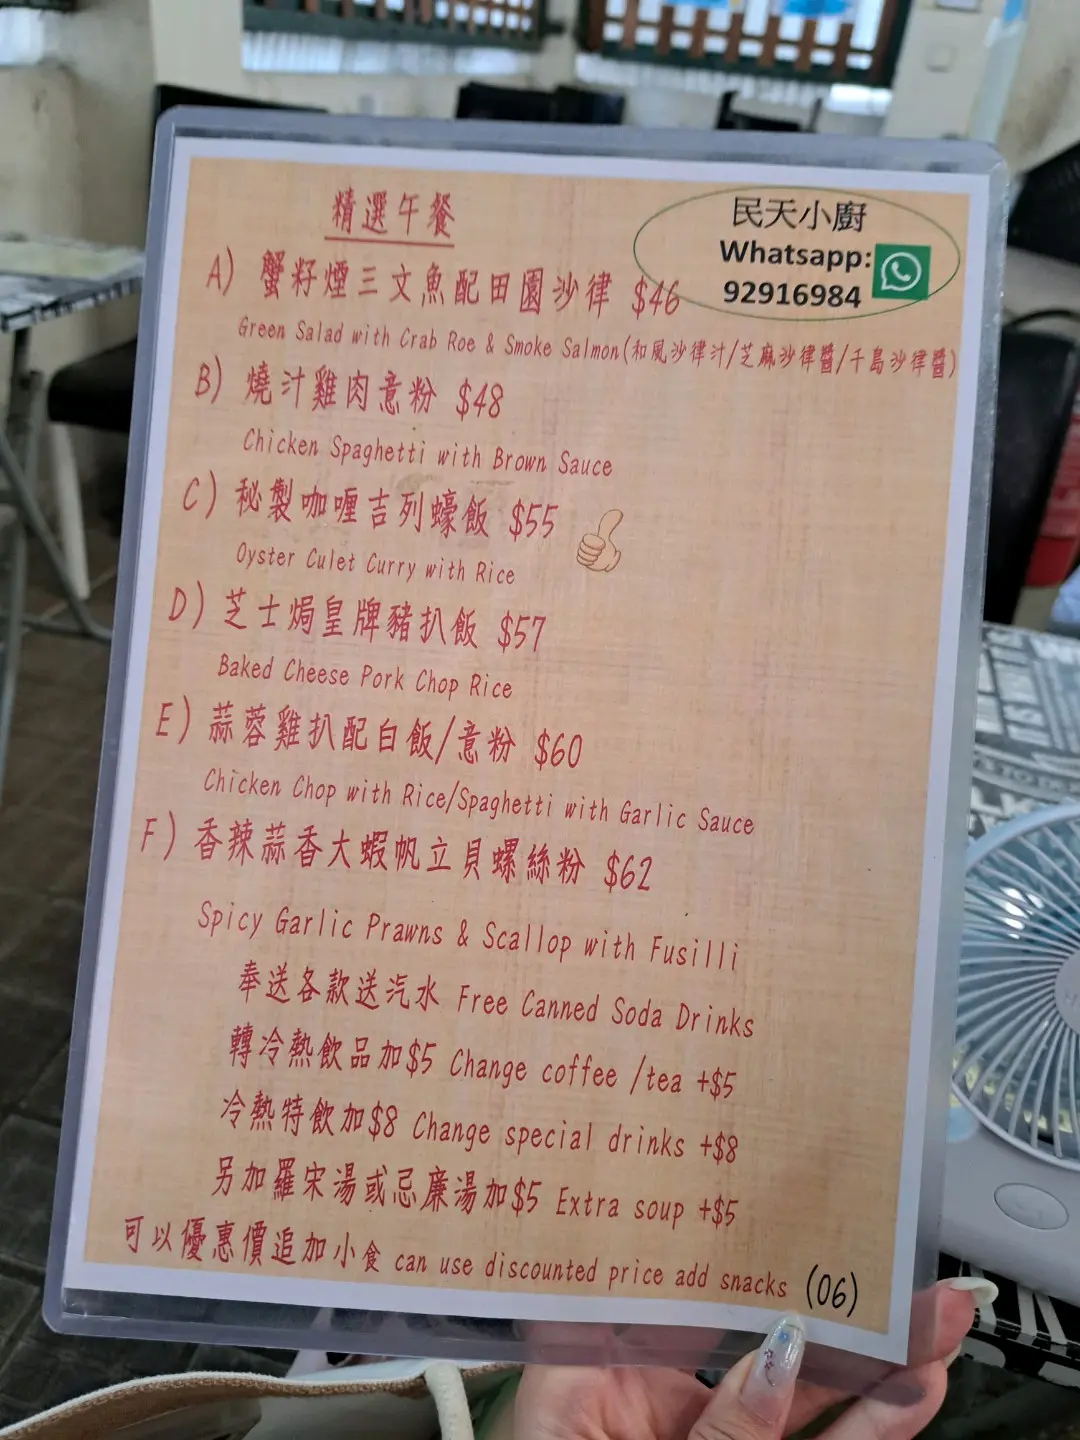 精選午餐
民天小廚
Whatsapp:
92916984
A) 蟹籽煙三文魚配田園沙律 $46
Green Salad with Crab Roe & Smoke Salmon(和風沙律汁/芝麻沙律醬/千島沙律醬)
B) 燒汁雞肉意粉 $48
Chicken Spaghetti with Brown Sauce
C) 秘製咖喱吉列蠔飯 $55
Oyster Culet Curry with Rice
D) 芝士焗皇牌豬扒飯 $57
Baked Cheese Pork Chop Rice
E) 蒜蓉雞扒配白飯/意粉 $60
Chicken Chop with Rice/Spaghetti with Garlic Sauce
F) 香辣蒜香大蝦帆立貝螺絲粉 $62
Spicy Garlic Prawns & Scallop with Fusilli
奉送各款送汽水 Free Canned Soda Drinks
轉冷熱飲品加$5 Change coffee /tea +$5
冷熱特飲加$8 Change special drinks +$8
另加羅宋湯或忌廉湯加$5 Extra soup +$5
可以優惠價追加小食 can use discounted price add snacks (06)